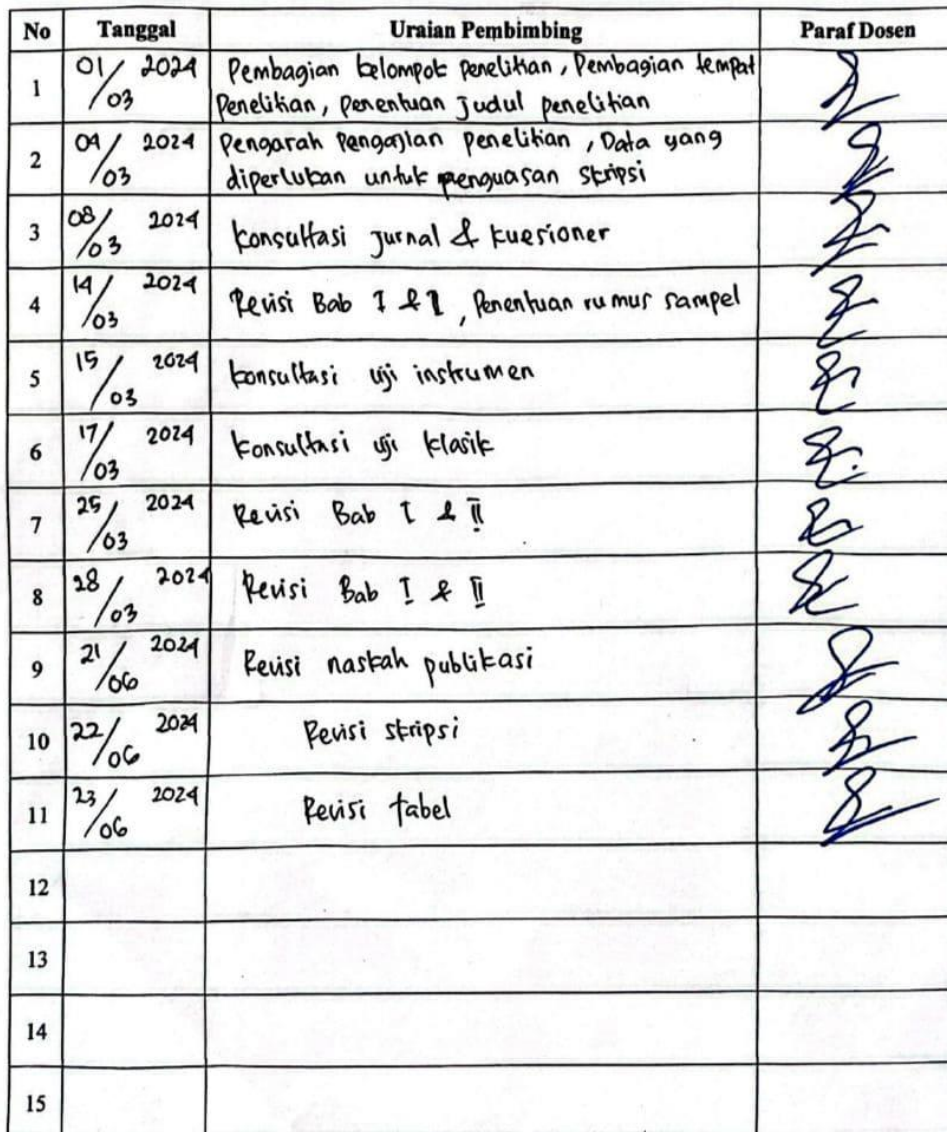 No Tanggal Uraian Pembimbing Paraf Dosen
1 01/03 2024 Pembagian kelompok penelitian, Pembagian tempat
Penelitian, penentuan judul penelitian
2 04/03 2024 Pengarah Pengajlan penelitian, Data yang
diperlukan untuk penguasan skripsi
3 08/03 2024 konsultasi jurnal & kuesioner
4 14/03 2024 Revisi Bab I & I, Penentuan rumus sampel
5 15/03 2024 konsultasi uji instrumen
6 17/03 2024 konsultasi uji klasik
7 25/03 2024 Revisi Bab I & II
8 28/03 2024 Revisi Bab I & II
9 21/06 2024 Revisi naskah publikasi
10 22/06 2024 Revisi skripsi
11 23/06 2024 Revisi tabel
12
13
14
15